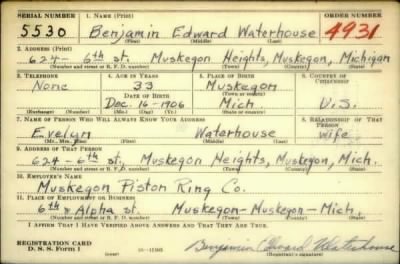 SERIAL NUMBER 1. NAME (Print) ORDER NUMBER
5530 Benjamin Edward Waterhouse 4931
(First) (Middle) (Last)
2. ADDRESS (Print)
624- 6th st. Muskegon Heights, Muskegon, Michigan
(Number and street or R. F. D. number) (Town) (County) (State)
3. TELEPHONE 4. AGE IN YEARS 5. PLACE OF BIRTH 6. COUNTRY OF CITIZENSHIP
None 33 Muskegon
(Town or county)
DATE OF BIRTH
Dec. 16-1906 Mich. U.S.
(Exchange) (Number) (Mo.) (Day) (Yr.) (State or country)
7. NAME OF PERSON WHO WILL ALWAYS KNOW YOUR ADDRESS 8. RELATIONSHIP OF THAT PERSON
Evelyn Waterhouse Wife
(Mr., Mrs., Miss) (First) (Middle) (Last)
9. ADDRESS OF THAT PERSON
624-6th st, Muskegon Heights, Muskegon, Mich.
(Number and street or R. F. D. number) (Town) (County) (State)
10. EMPLOYER'S NAME
Muskegon Piston Ring Co.
11. PLACE OF EMPLOYMENT OR BUSINESS
6th & Alpha st. Muskegon-Muskegon-Mich.
(Number and street or R. F. D. number) (Town) (County) (State)
I AFFIRM THAT I HAVE VERIFIED ABOVE ANSWERS AND THAT THEY ARE TRUE.
REGISTRATION CARD
D. S. S. Form 1 Benjamin Edward Waterhouse
(Registrant's signature)